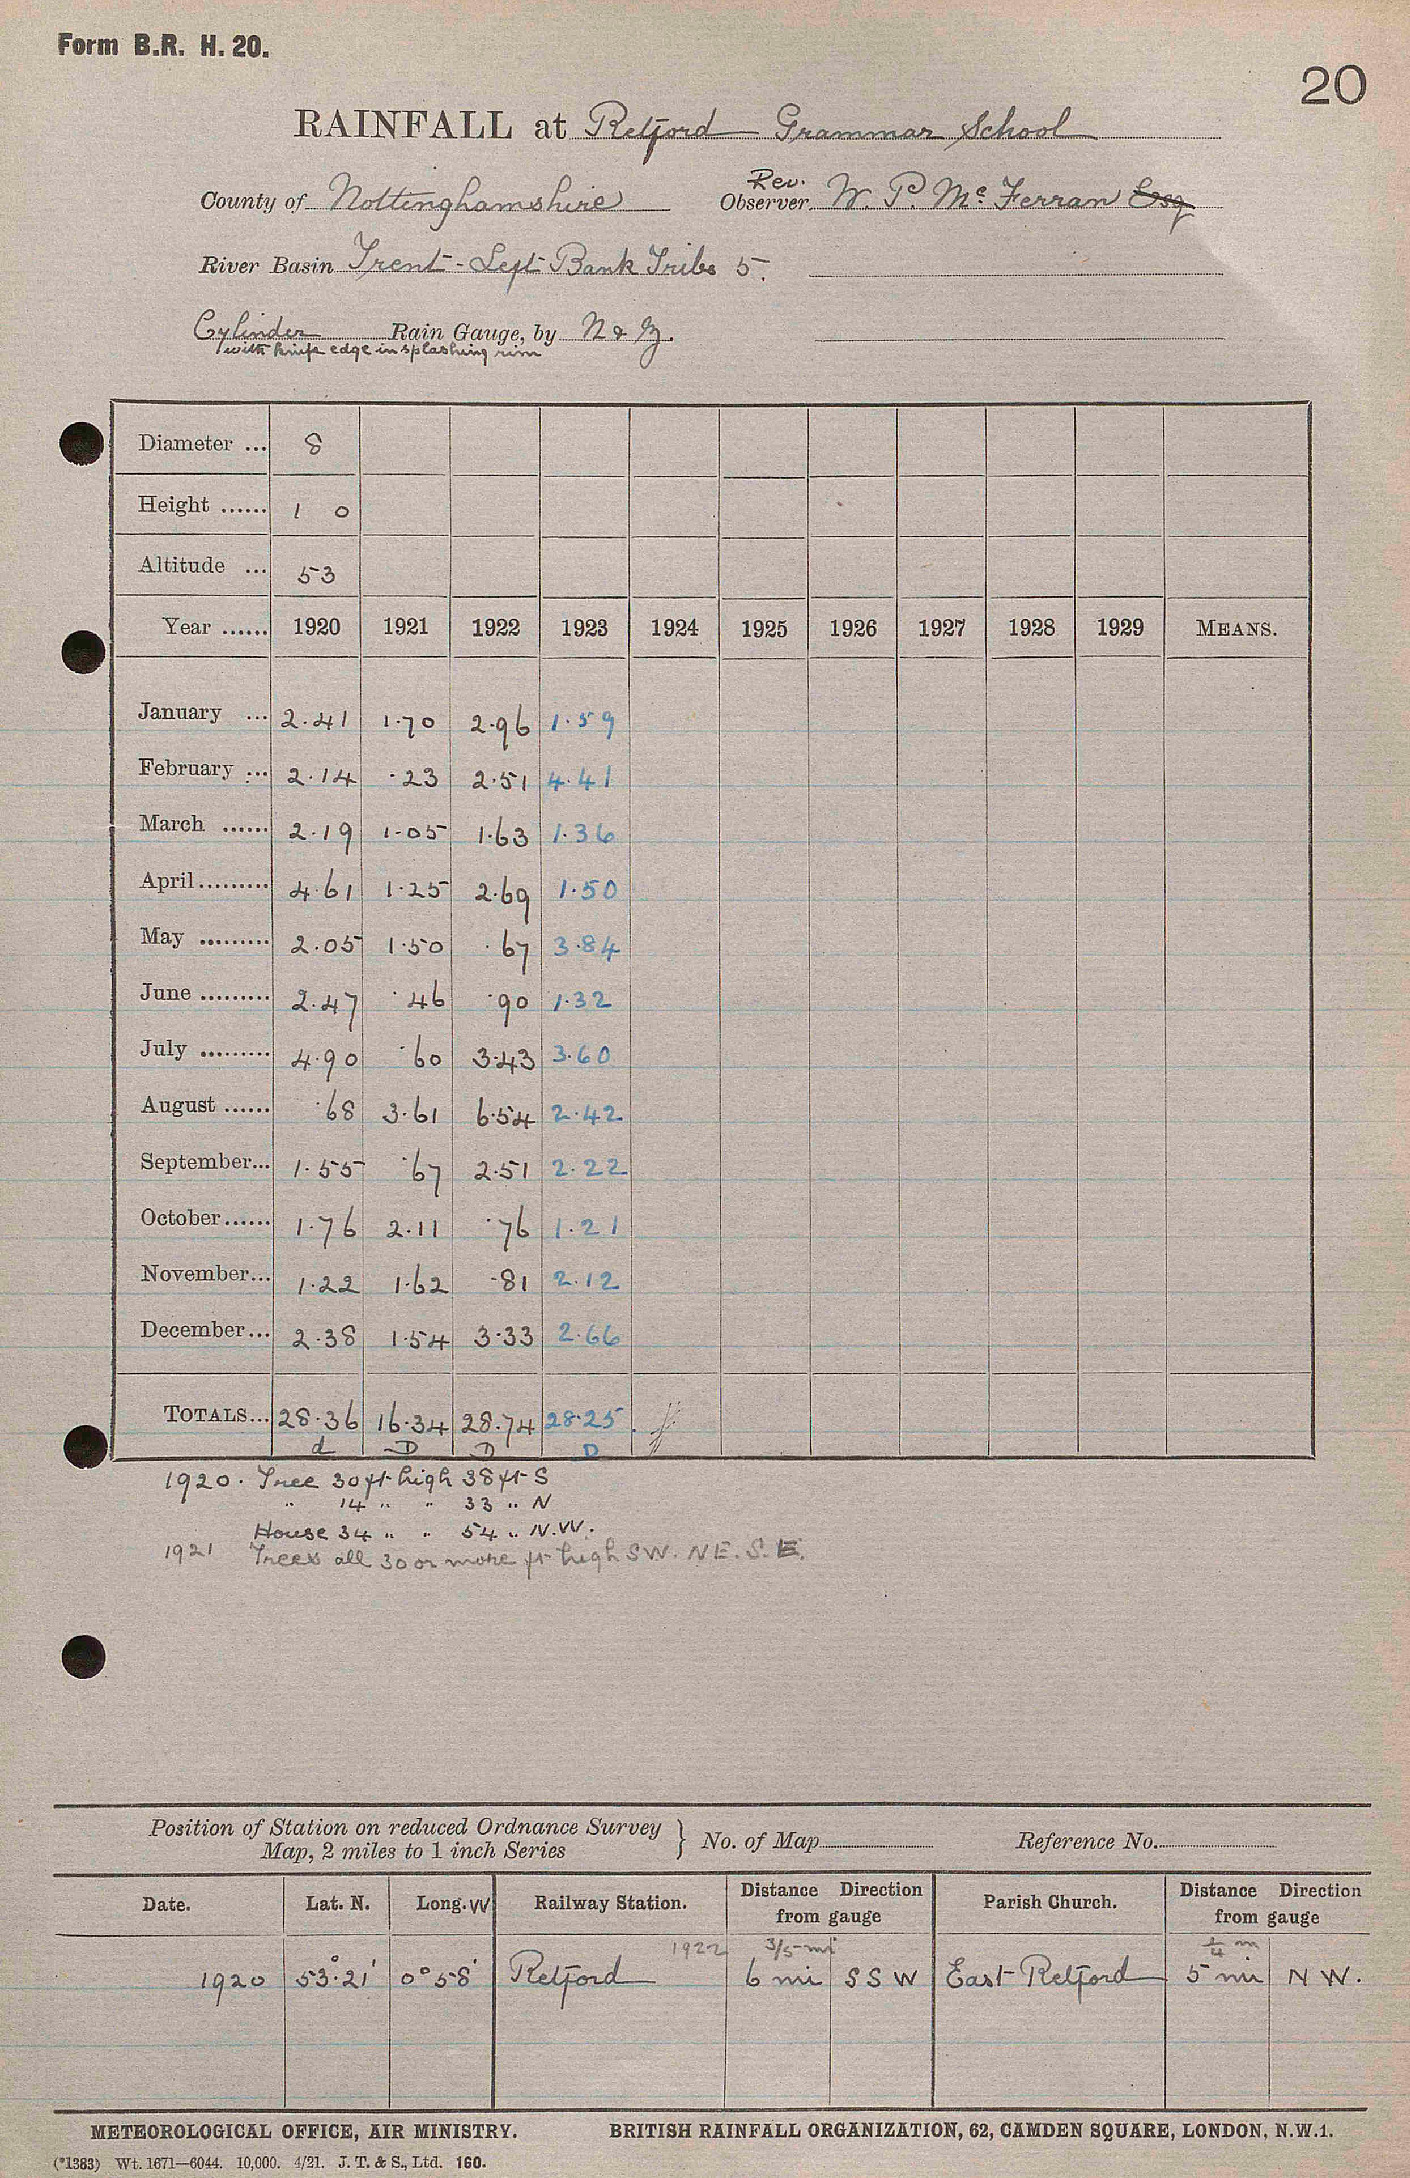 Form B.R. H. 20.
20
RAINFALL at Retford Grammar School
County of Nottinghamshire Rev. Observer W. P. Mc Ferran Esq
River Basin Trent - Left Bank Tribs 5.
Cylinder Rain Gauge, by N & Z.
with knife edge in splashing rim
Diameter ... 8
Height ...... 1 0
Altitude ... 53
Year ...... 1920 1921 1922 1923 1924 1925 1926 1927 1928 1929 MEANS.
January ... 2.41 1.70 2.96 1.59
February ... 2.14 .23 2.51 4.41
March ...... 2.19 1.05 1.63 1.36
April ......... 4.61 1.25 2.69 1.50
May ......... 2.05 1.50 .67 3.84
June ......... 2.47 .46 .90 1.32
July ......... 4.90 .60 3.43 3.60
August ...... .68 3.61 6.54 2.42
September... 1.55 .67 2.51 2.22
October ...... 1.76 2.11 .76 1.21
November... 1.22 1.62 .81 2.12
December... 2.38 1.54 3.33 2.66
TOTALS... 28.36 16.34 28.74 28.25
d D D D
1920. Tree 30 ft high 38 ft S
" 14 " " 33 " N
House 34 " " 54 " N.W.
1921 Trees all 30 or more ft high SW. NE. S. E.
Position of Station on reduced Ordnance Survey Map, 2 miles to 1 inch Series } No. of Map Reference No.
Date. Lat. N. Long. W Railway Station. Distance Direction from gauge Parish Church. Distance Direction from gauge
1922 3/5 mi 1/4 m
1920 53° 21' 0° 58' Retford 6 mi SSW East Retford 5 mi N W.
METEOROLOGICAL OFFICE, AIR MINISTRY. BRITISH RAINFALL ORGANIZATION, 62, CAMDEN SQUARE, LONDON, N.W.1.
(*1383) Wt. 1671—6044. 10,000. 4/21. J. T. & S., Ltd. 160.